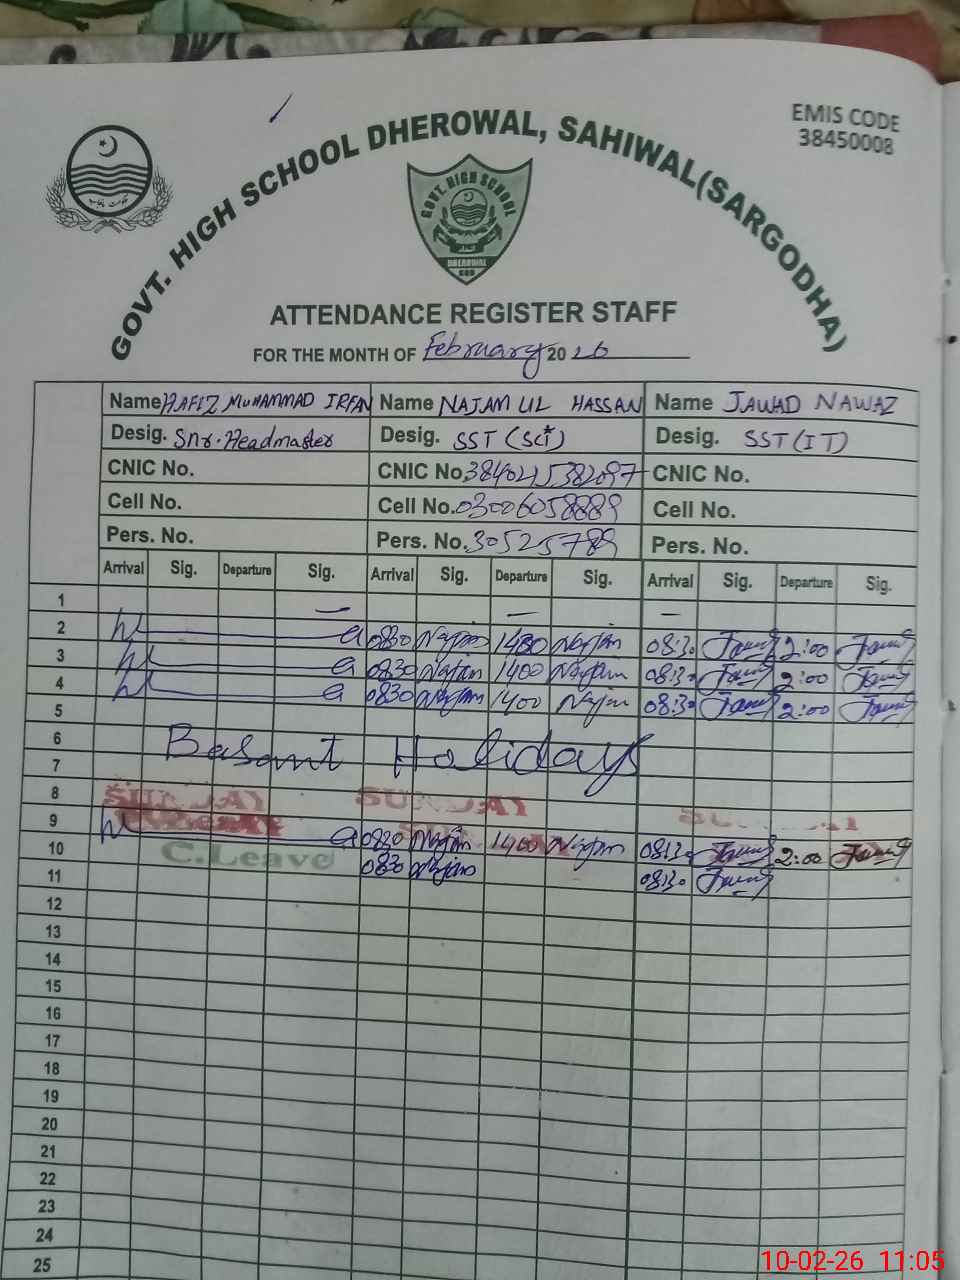 EMIS CODE
38450008
GOVT. HIGH SCHOOL DHEROWAL, SAHIWAL(SARGODHA)
GOVT. HIGH SCHOOL
DHEROWAL
ATTENDANCE REGISTER STAFF
FOR THE MONTH OF February 2026
Name HAFIZ MUHAMMAD IRFAN Name NAJAM UL HASSAN Name JAWAD NAWAZ
Desig. Snr. Headmaster Desig. SST (Sci) Desig. SST (IT)
CNIC No. CNIC No. 3840215382097 CNIC No.
Cell No. Cell No. 03006058889 Cell No.
Pers. No. Pers. No. 30525789 Pers. No.
Arrival Sig. Departure Sig. Arrival Sig. Departure Sig. Arrival Sig. Departure Sig.
1
2 0830 Najam 1400 Najam 08:30 2:00
3 0830 Najam 1400 Najam 08:30 2:00
4 0830 Najam 1400 Najam 08:30 2:00
5
6 Basant Holidays
7
8 SUNDAY SUNDAY SUNDAY
9 0830 Najam 1400 Najam 08:30 2:00
10 C.Leave 0830 Najam 08:30
11
12
13
14
15
16
17
18
19
20
21
22
23
24
25
10-02-26 11:05